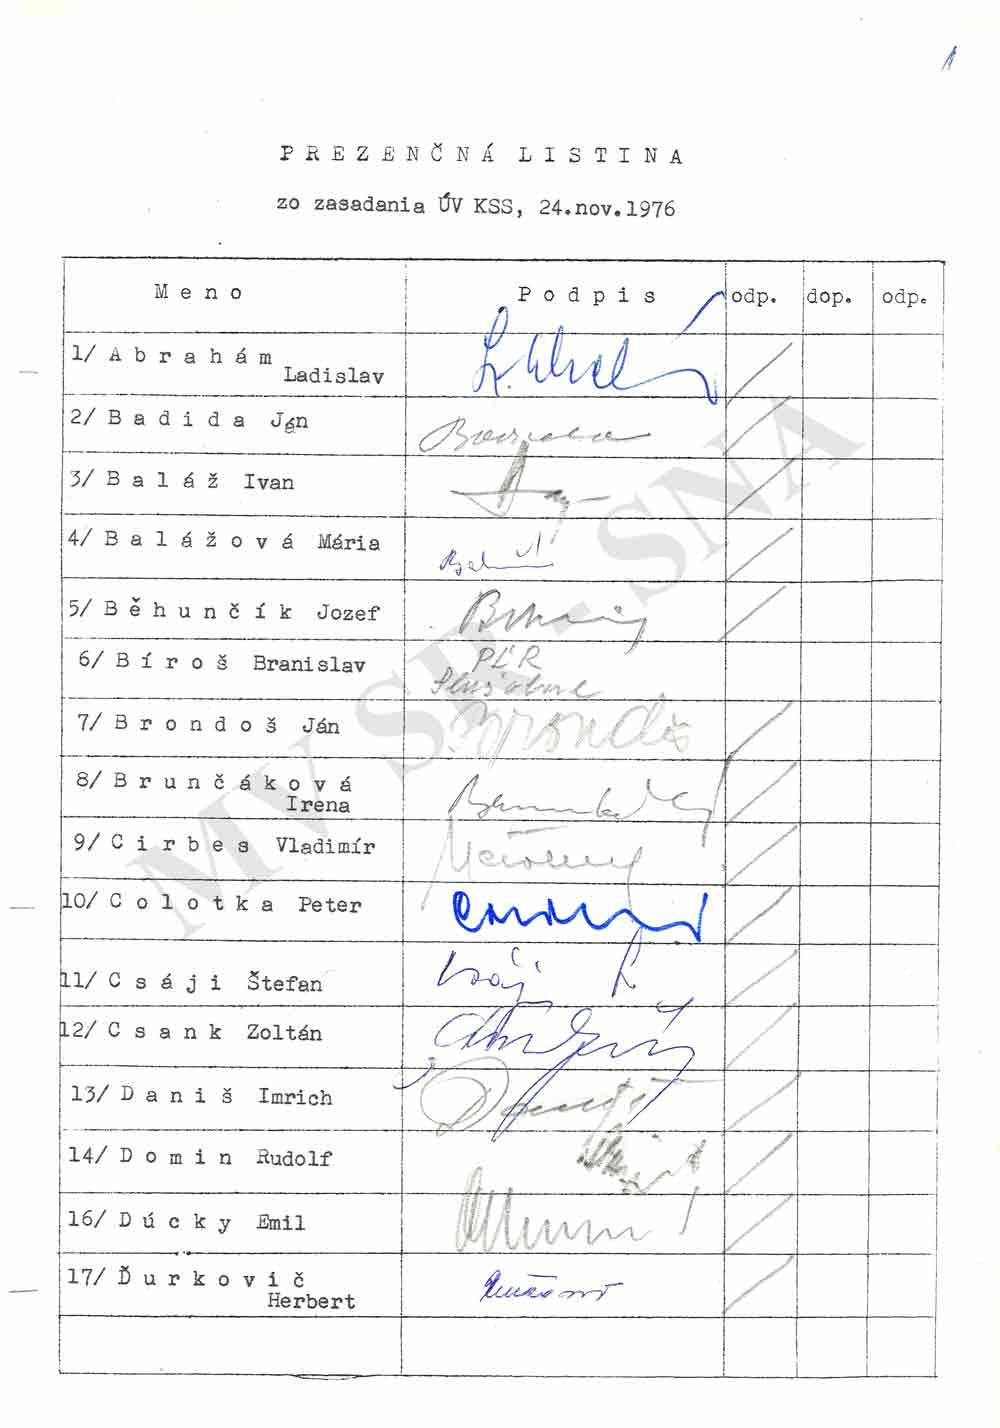 PREZENČNÁ LISTINA
zo zasadania ÚV KSS, 24.nov.1976
Meno Podpis odp. dop. odp.
1/ Abrahám
Ladislav
2/ Badida Ján
3/ Baláž Ivan
4/ Balážová Mária
5/ Běhunčík Jozef
6/ Bíroš Branislav PĽR
7/ Brondoš Ján
8/ Brunčáková
Irena
9/ Cirbes Vladimír
10/ Colotka Peter
11/ Csáji Štefan
12/ Csank Zoltán
13/ Daniš Imrich
14/ Domin Rudolf
16/ Dúcky Emil
17/ Ďurkovič
Herbert
MV SR - SNA